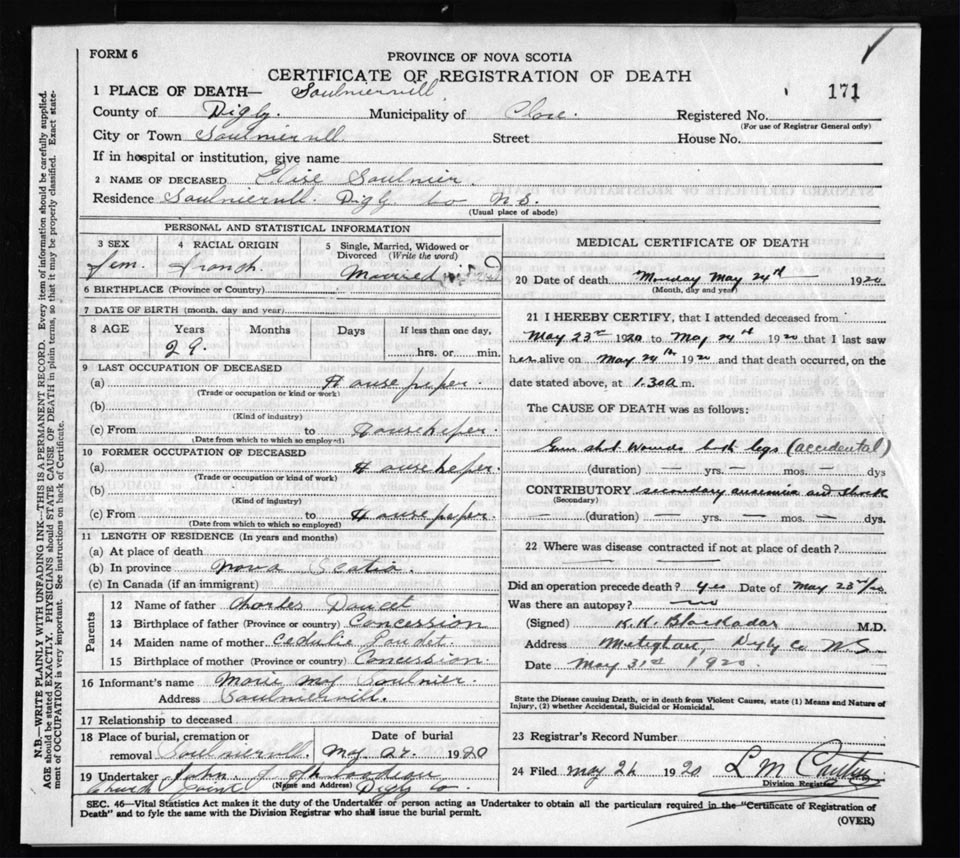 FORM 6
PROVINCE OF NOVA SCOTIA
CERTIFICATE OF REGISTRATION OF DEATH
171
1 PLACE OF DEATH— Saulniervill
County of Digby Municipality of Clare. Registered No.
(For use of Registrar General only)
City or Town Saulniervill Street House No.
If in hospital or institution, give name
2 NAME OF DECEASED Elise Saulnier.
Residence Saulniervill. Digby Co N.S.
(Usual place of abode)
PERSONAL AND STATISTICAL INFORMATION
3 SEX 4 RACIAL ORIGIN 5 Single, Married, Widowed or Divorced (Write the word)
fem. Married
6 BIRTHPLACE (Province or Country)
7 DATE OF BIRTH (month, day and year)
8 AGE Years Months Days If less than one day,
29. hrs. or min.
9 LAST OCCUPATION OF DECEASED
(a) House keper.
(Trade or occupation or kind of work)
(b)
(Kind of industry)
(c) From to Housekeper.
(Date from which to which so employed)
10 FORMER OCCUPATION OF DECEASED
(a) House keper.
(Trade or occupation or kind of work)
(b)
(Kind of industry)
(c) From to House keper.
(Date from which to which so employed)
11 LENGTH OF RESIDENCE (In years and months)
(a) At place of death
(b) In province Nova Scotia.
(c) In Canada (if an immigrant)
Parents
12 Name of father Charles Doucet
13 Birthplace of father (Province or country) Concession
14 Maiden name of mother
15 Birthplace of mother (Province or country) Concession
16 Informant's name Saulnier.
Address Saulniervill.
17 Relationship to deceased
18 Place of burial, cremation or removal Saulniervill. Date of burial May 1920
19 Undertaker John
(Name and Address)
Church Point Digby Co.
MEDICAL CERTIFICATE OF DEATH
20 Date of death Monday May 24th 1920
(Month, day and year)
21 I HEREBY CERTIFY, that I attended deceased from
May 23rd 1920 to May 24th 1920 that I last saw
her alive on May 24th 1920 and that death occurred, on the
date stated above, at 1.30 a.m.
The CAUSE OF DEATH was as follows:
Gun shot wounds both legs (accidental)
(duration) — yrs. — mos. — dys
CONTRIBUTORY secondary anaemia and shock
(Secondary)
— (duration) — yrs. — mos. — dys.
22 Where was disease contracted if not at place of death?
Did an operation precede death? yes Date of May 23rd/20
Was there an autopsy? no
(Signed) Blackadar M.D.
Address Meteghan, Digby Co N.S.
Date May 31st 1920.
State the Disease causing Death, or in death from Violent Causes, state (1) Means and Nature of Injury, (2) whether Accidental, Suicidal or Homicidal.
23 Registrar's Record Number
24 Filed May 26 1920 L M
Division Registrar
SEC. 46—Vital Statistics Act makes it the duty of the Undertaker or person acting as Undertaker to obtain all the particulars required in the "Certificate of Registration of
Death" and to fyle the same with the Division Registrar who shall issue the burial permit.
(OVER)
N.B.—WRITE PLAINLY WITH UNFADING INK—THIS IS A PERMANENT RECORD. Every item of information should be carefully supplied.
AGE should be stated EXACTLY. PHYSICIANS should STATE CAUSE OF DEATH in plain terms, so that it may be properly classified. Exact state-
ment of OCCUPATION is very important. See instructions on back of Certificate.